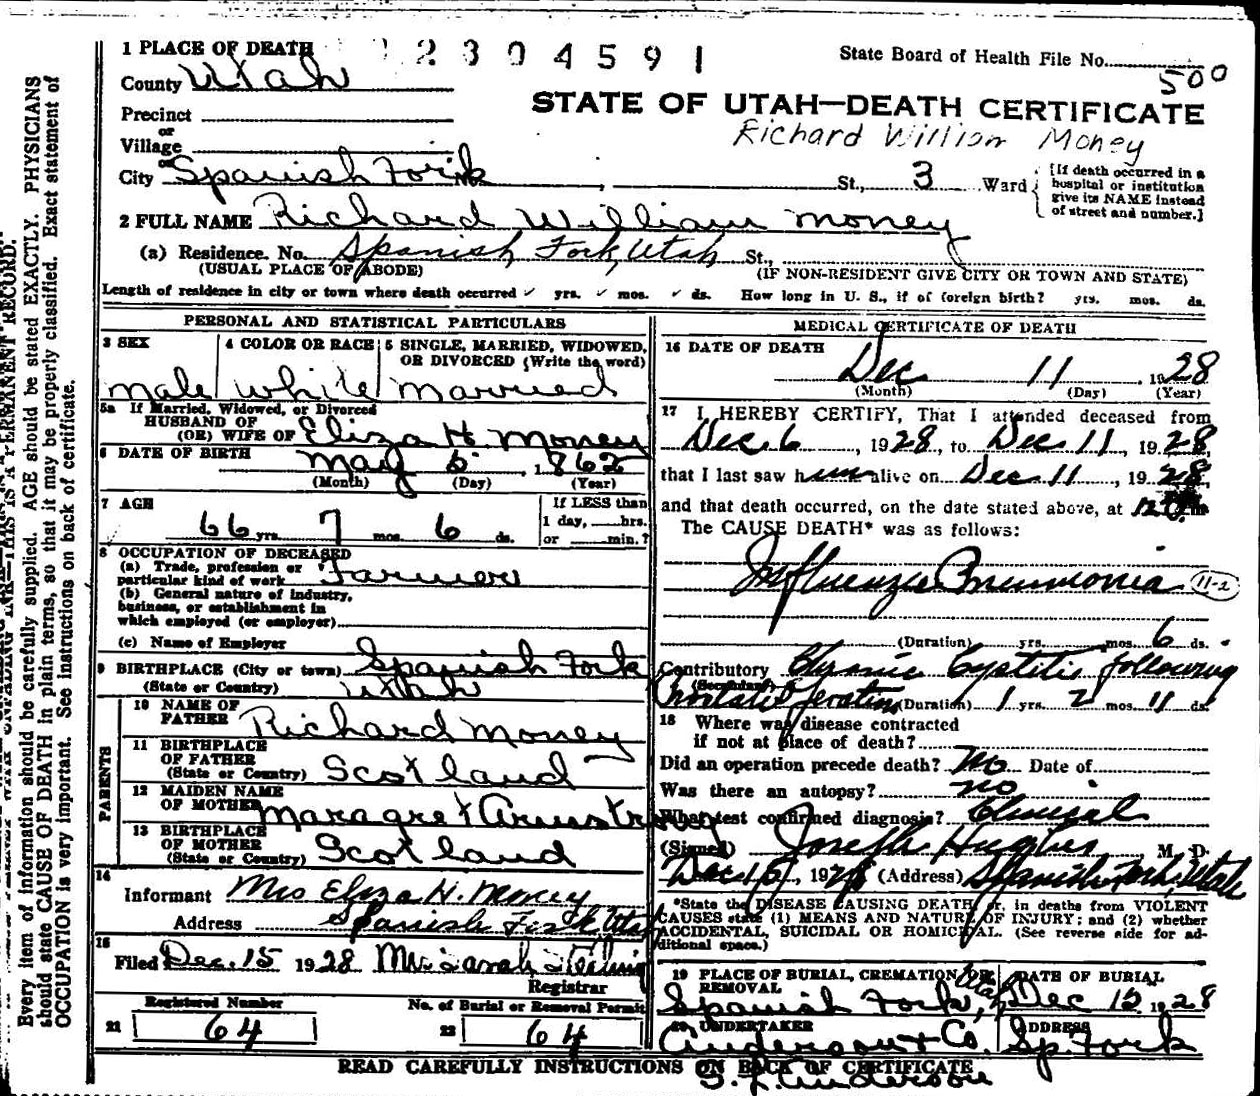 1 PLACE OF DEATH 2304591 State Board of Health File No. 500
County Utah
STATE OF UTAH—DEATH CERTIFICATE
Precinct
or
Richard William Money
Village
or
City Spanish Fork No. , St., 3 Ward
[If death occurred in a
hospital or institution
give its NAME instead
of street and number.]
2 FULL NAME Richard William Money
(a) Residence. No. Spanish Fork, Utah St.,
(USUAL PLACE OF ABODE) (IF NON-RESIDENT GIVE CITY OR TOWN AND STATE)
Length of residence in city or town where death occurred ✓ yrs. ✓ mos. ✓ ds. How long in U. S., if of foreign birth? yrs. mos. ds.
PERSONAL AND STATISTICAL PARTICULARS
3 SEX 4 COLOR OR RACE 5 SINGLE, MARRIED, WIDOWED,
OR DIVORCED (Write the word)
male white married
5a If Married, Widowed, or Divorced
HUSBAND OF
(OR) WIFE OF Eliza H. Money
6 DATE OF BIRTH May 5 1862
(Month) (Day) (Year)
7 AGE If LESS than
66 yrs. 7 mos. 6 ds. 1 day, hrs.
or min.?
8 OCCUPATION OF DECEASED
(a) Trade, profession or
particular kind of work Farmer
(b) General nature of industry,
business, or establishment in
which employed (or employer)
(c) Name of Employer
9 BIRTHPLACE (City or town) Spanish Fork
(State or Country) Utah
PARENTS
10 NAME OF
FATHER Richard Money
11 BIRTHPLACE
OF FATHER
(State or Country) Scotland
12 MAIDEN NAME
OF MOTHER Maragret Armstrong
13 BIRTHPLACE
OF MOTHER
(State or Country) Scotland
14
Informant Mrs Eliza H. Money
Address Spanish Fork Utah
15
Filed Dec. 15 1928 Mrs Sarah
Registrar
Registered Number No. of Burial or Removal Permit
21 64 22 64
MEDICAL CERTIFICATE OF DEATH
16 DATE OF DEATH
Dec 11, 1928
(Month) (Day) (Year)
17 I HEREBY CERTIFY, That I attended deceased from
Dec. 6, 1928, to Dec 11, 1928,
that I last saw him alive on Dec. 11, 1928,
and that death occurred, on the date stated above, at 12
The CAUSE DEATH* was as follows:
Influenza Pneumonia 11-2
(Duration) yrs. mos. 6 ds.
Contributory Chronic Cystitis following
(Secondary)
(Duration) 1 yrs. 2 mos. 11 ds.
18 Where was disease contracted
if not at place of death?
Did an operation precede death? No Date of
Was there an autopsy? no
What test confirmed diagnosis? Clinical
(Signed) Joseph Hughes M. D.
Dec 15, 1928 (Address) Spanish Fork, Utah
*State the DISEASE CAUSING DEATH, or, in deaths from VIOLENT
CAUSES state (1) MEANS AND NATURE OF INJURY; and (2) whether
ACCIDENTAL, SUICIDAL OR HOMICIDAL. (See reverse side for ad-
ditional space.)
19 PLACE OF BURIAL, CREMATION, OR
REMOVAL
Spanish Fork, Utah
DATE OF BURIAL
Dec 15 1928
20 UNDERTAKER
Anderson & Co.
ADDRESS
Sp. Fork
READ CAREFULLY INSTRUCTIONS ON BACK OF CERTIFICATE
Anderson
Every item of information should be carefully supplied. AGE should be stated EXACTLY. PHYSICIANS
should state CAUSE OF DEATH in plain terms, so that it may be properly classified. Exact statement of
OCCUPATION is very important. See instructions on back of certificate.